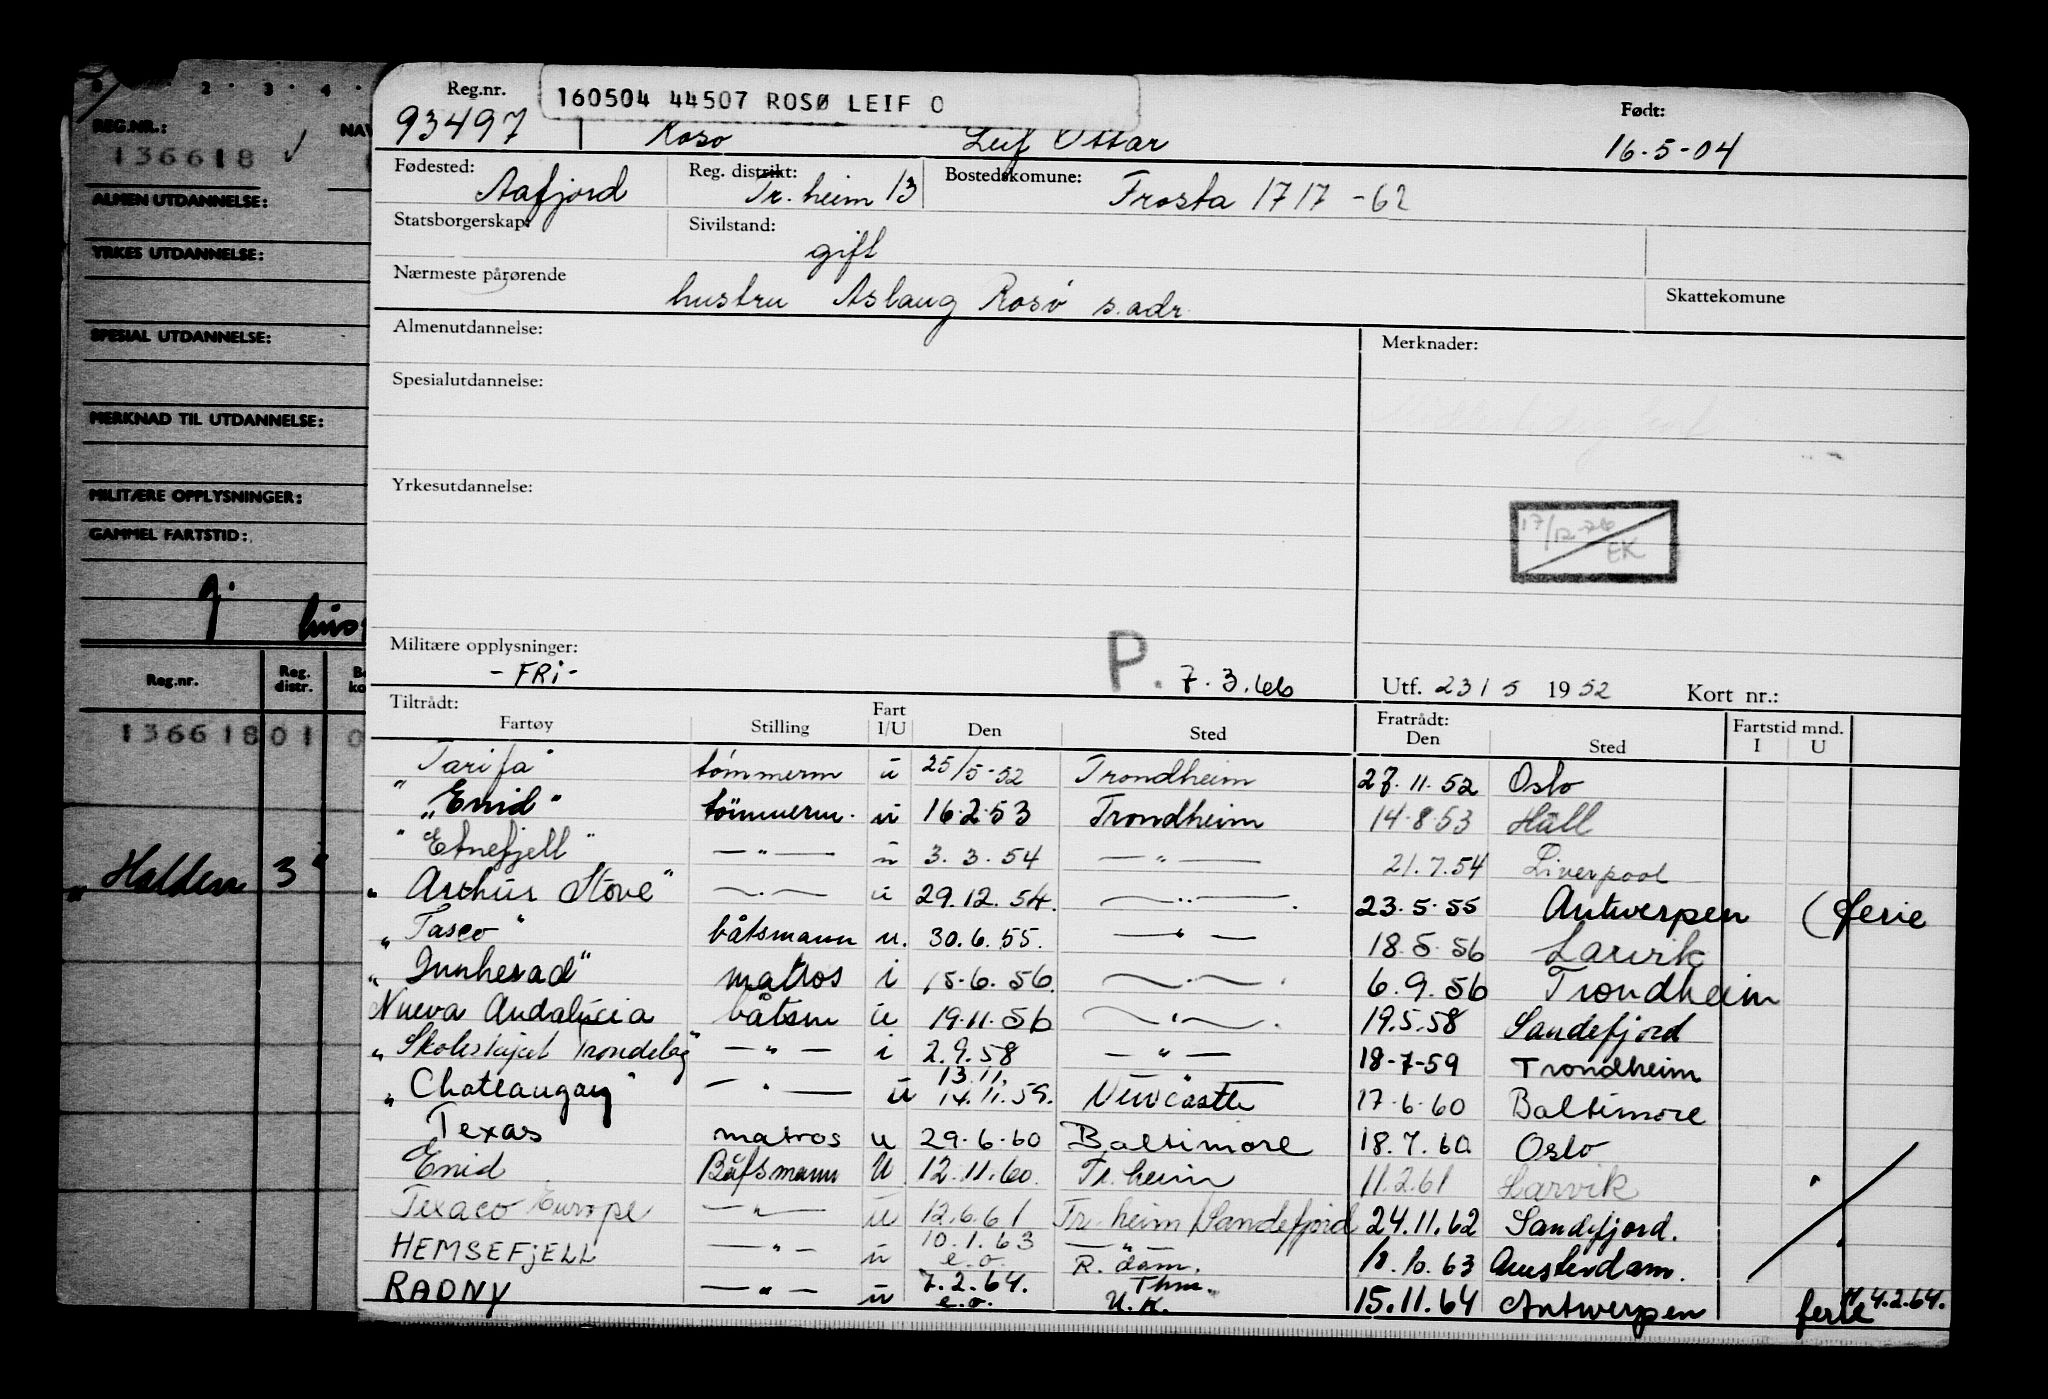 2 · 3 · 4 ·
REG.NR.: NAV
136618 ✓
ALMEN UTDANNELSE:
YRKES UTDANNELSE:
SPESIAL UTDANNELSE:
MERKNAD TIL UTDANNELSE:
MILITÆRE OPPLYSNINGER:
GAMMEL FARTSTID:
g. hus
Reg.nr. Reg. distr. B ko
136618 01 0
"Halden" 3
Reg.nr. 160504 44507 ROSØ LEIF O Født:
93497 Rosø Leif Ottar 16-5-04
Fødested: Aafjord Reg. distrikt: Tr.heim 13 Bostedskomune: Frosta 1717 -62
Statsborgerskap: Sivilstand: gift
Nærmeste pårørende hustru Aslaug Rosø s.adr. Skattekomune
Almenutdannelse: Merknader:
Spesialutdannelse:
17/12-76 EK
Yrkesutdannelse:
Militære opplysninger: - FRi - P. 7.3.66 Utf. 23/5 1952 Kort nr.:
Tiltrådt: Fartøy Stilling Fart I/U Den Sted Fratrådt: Den Sted Fartstid mnd. I U
"Tarifa" tømmerm u 25/5-52 Trondheim 27.11.52 Oslo
"Enid" tømmerm. u 16.2.53 Trondheim 14-8-53 Hull
"Etnefjell" — " — u 3.3.54 — " — 21.7.54 Liverpool
"Arthur Stove" — " — u 29.12.54. — " — 23.5.55 Antwerpen (ferie
"Tasco" båtsmann u. 30.6.55. — " — 18.5.56 Larvik
"Gunherad" matros i 15.6.56. — " — 6.9.56 Trondheim
Nueva Andalucia båtsm u 19.11.56 — " — 19.5.58 Sandefjord
"Skoleskipet Trøndelag" — " — i 2.9.58 — " — 18-7-59 Trondheim
"Chateaugay" — " — u 13.11. 14.11.59. Newcastle 17-6-60 Baltimore
Texas matros u 29-6-60 Baltimore 18.7.60 Oslo
Enid Båtsmann U 12.11.60. Tr.heim 11.2.61 Larvik
Texaco Europe — " — u 12.6.61 Tr.heim/Sandefjord 24.11.62 Sandefjord.
HEMSEFJELL — " — u 10.1.63 e.o. — " — R.dam. 11.10.63 Amsterdam.
RADNY — " — u 7.2.64. e.o. Thm. U.K. 15.11.64 Antwerpen ferie 4.2.64.